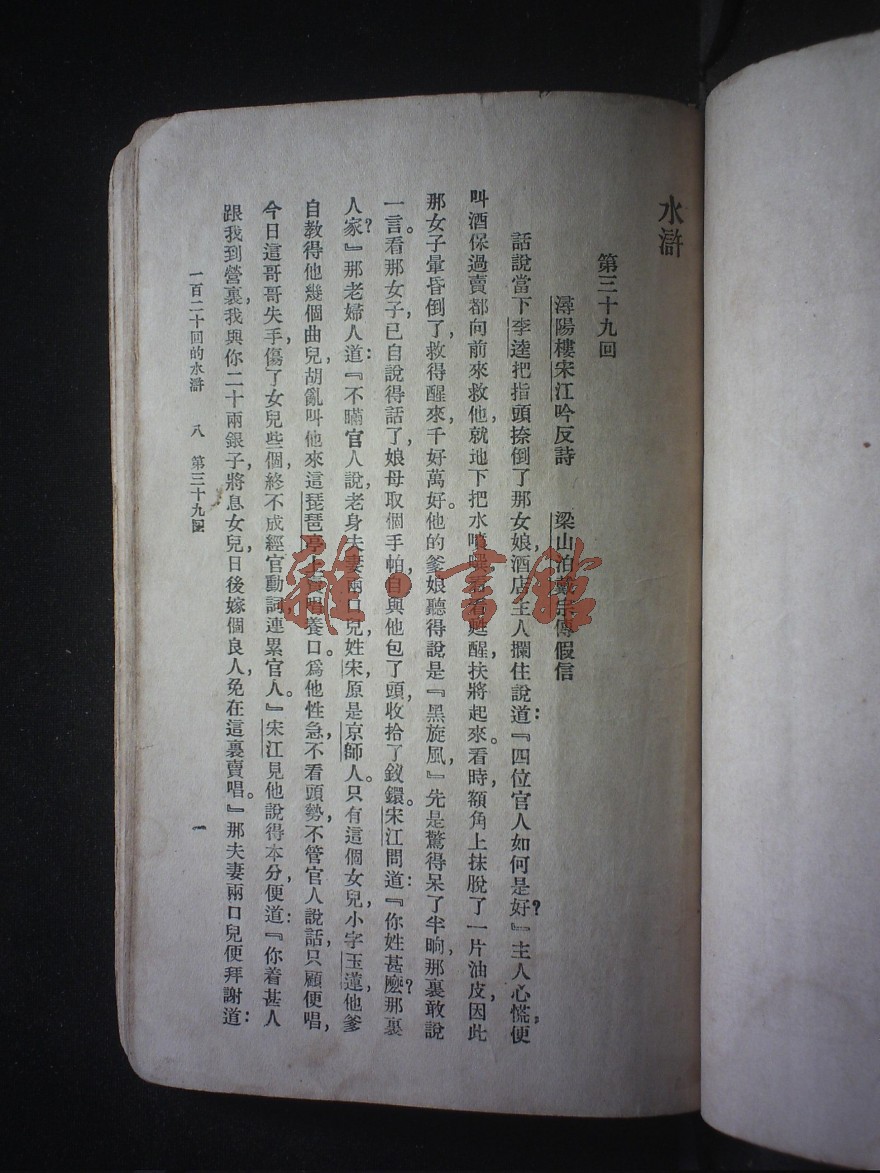 水滸
第三十九回
潯陽樓宋江吟反詩 梁山泊戴宗傳假信
話說當下李逵把指頭捺倒了那女娘，酒店主人攔住說道：『四位官人如何是好？』主人心慌，便
叫酒保過賣都向前來救他。就地下把水噴噀，看看甦醒，扶將起來看時，額角上抹脫了一片油皮，因此
那女子暈昏倒了。救得醒來，千好萬好。他的爹娘聽得說是『黑旋風，』先是驚得呆了半晌，那裏敢說
一言。看那女子，已自說得話了。娘母取個手帕，自與他包了頭，收拾了釵鐶。宋江問道：『你姓甚麽？那裏
人家？』那老婦人道：『不瞞官人說，老身夫妻兩口兒，姓宋，原是京師人。只有這個女兒，小字玉蓮，他爹
自教得他幾個曲兒，胡亂叫他來這琵琶亭上賣唱養口。爲他性急，不看頭勢，不管官人說話，只顧便唱，
今日這哥哥失手，傷了女兒些個，終不成經官動詞，連累官人。』宋江見他說得本分，便道：『你着甚人
跟我到營裏，我與你二十兩銀子，將息女兒，日後嫁個良人，免在這裏賣唱。』那夫妻兩口兒便拜謝道：
一百二十回的水滸 八 第三十九回 一
雜·書館